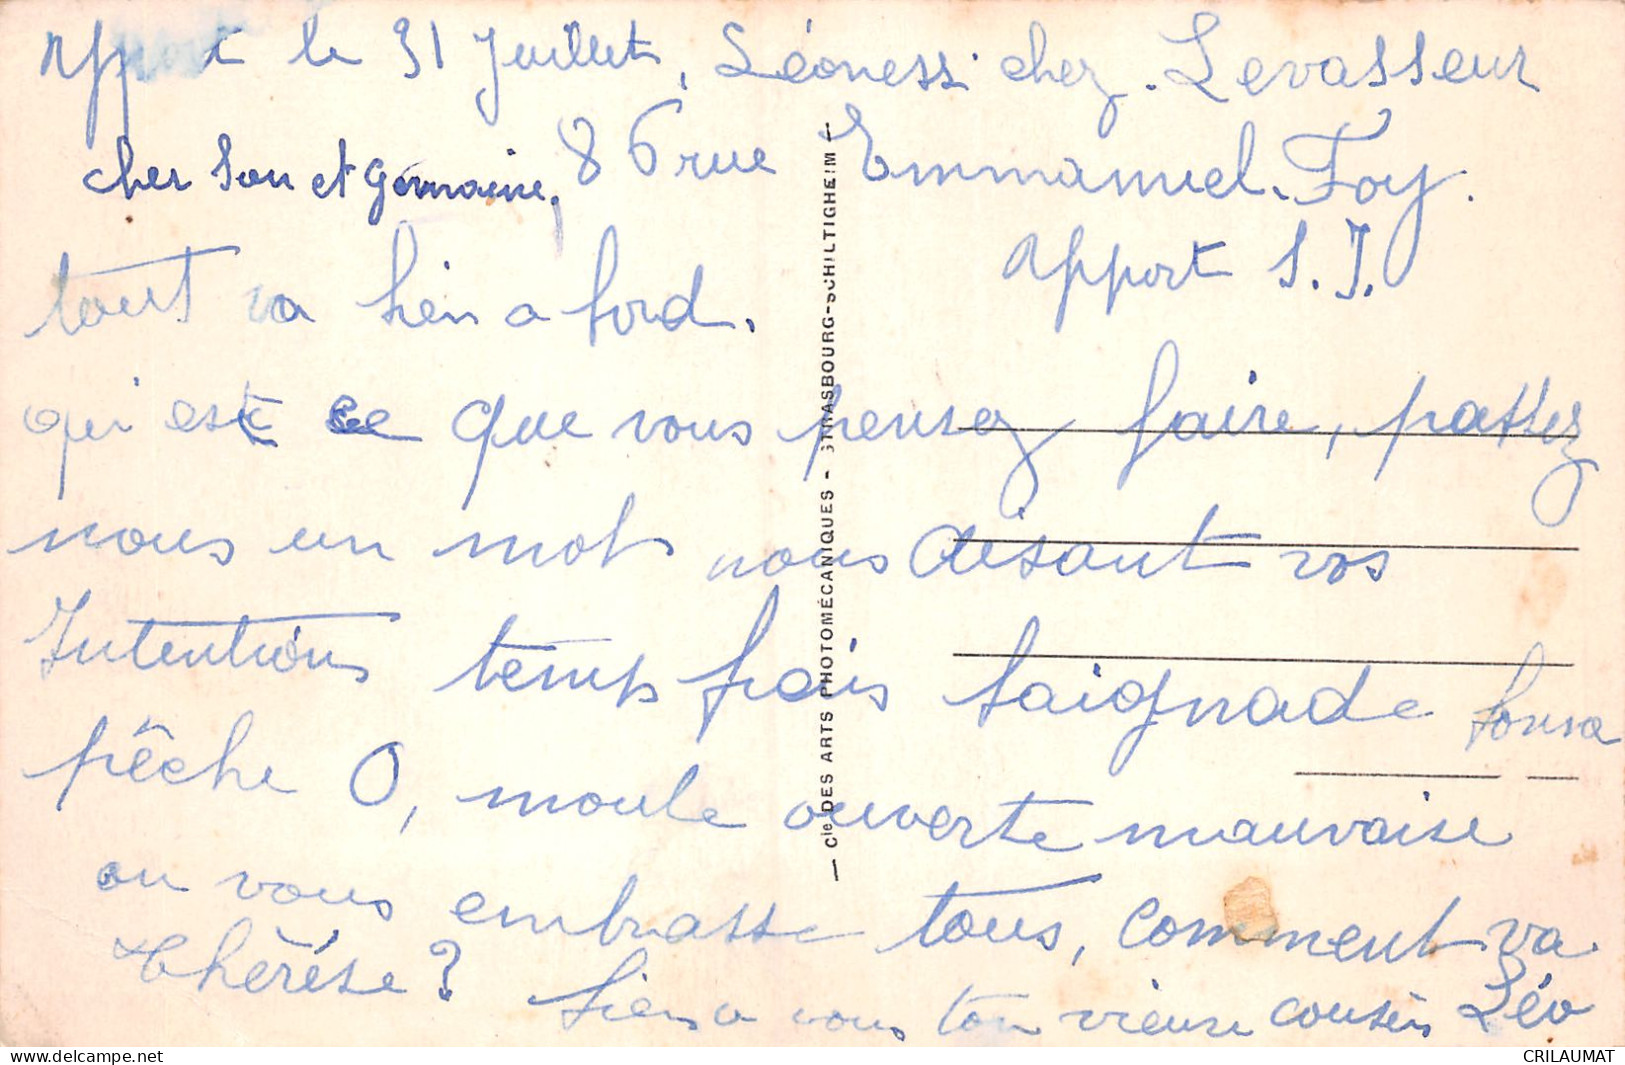 le 31 Juillet, Léoness. chez. Levasseur
cher Son et Germaine, 86 rue Emmanuel. Foy.
apport S. J.
tout va bien a bord.
qui est ce que vous pensez faire, passez
nous un mot nous disant vos
Intentions temps frais baignade bonne
pêche O, moule ouverte mauvaise
on vous embrasse tous, comment va
Thérèse? bien a vous ton vieux cousin Léo
— Cie DES ARTS PHOTOMÉCANIQUES - STRASBOURG-SCHILTIGHEIM —
CRILAUMAT
https://www.delcampe.net